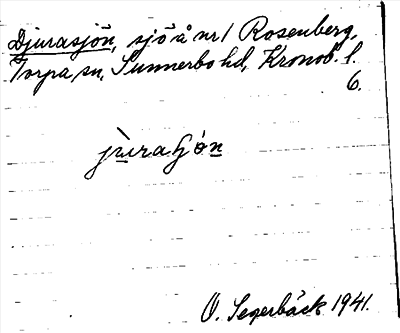 Djurasjön, sjö å nr 1 Rosenberg,
Torpa sn, Sunnerbo hd, Kronob. l.
6.
O. Segerbäck 1941.